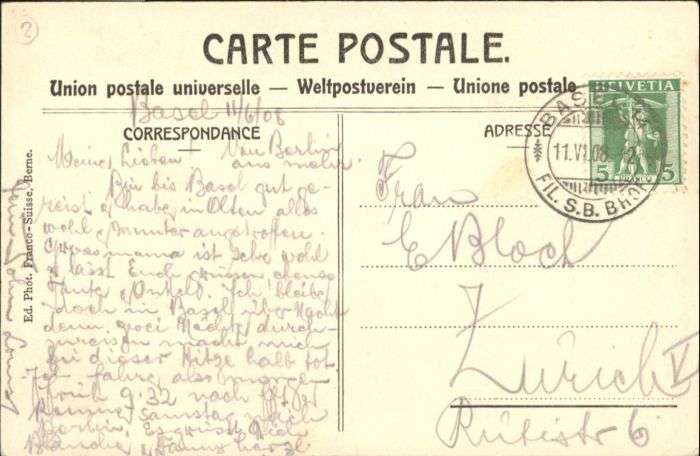 2
CARTE POSTALE.
Union postale universelle — Weltpostverein — Unione postale
HELVETIA
5 5
BASEL
11.VI.08.
FIL. S.B. BHOF
CORRESPONDANCE
ADRESSE
Basel 11/6/08
Meine Lieben! Von Berlin
aus mehr.
Bin bis Basel gut ge-
reist & habe in Olten alles
wohl & munter angetroffen.
Grossmama ist sehr wohl
& lässt Euch grüssen ebenso
Tante & Onkel. Ich bleibe
doch in Basel über Nacht
denn zwei Nächte durch-
zureisen macht mich
bei dieser Hitze halb tot
Ich fahre also morgen
früh 9.32 nach
Samstag nach
Berlin. Es grüsst Euch
Frau
E Bloch
Zürich V
Rütistr 6
Ed. Phot. Franco-Suisse, Berne.